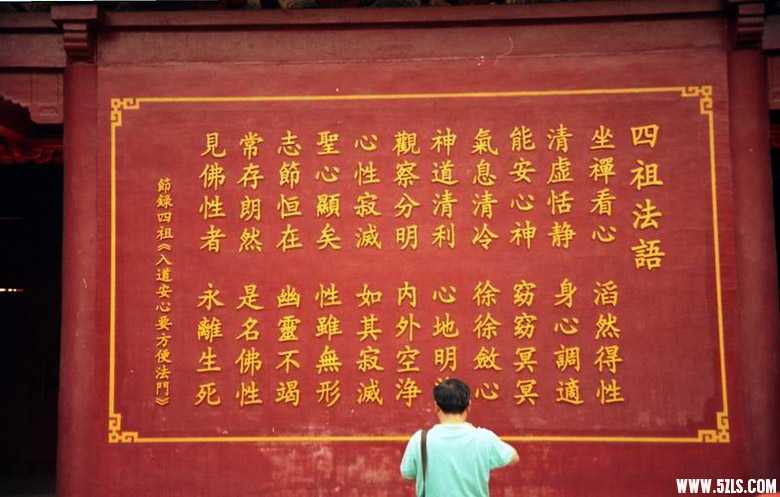 四祖法語
坐禪看心 滔然得性
清虛恬静 身心調適
能安心神 窈窈冥冥
氣息清冷 徐徐斂心
神道清利 心地明
觀察分明 内外空浄
心性寂滅 如其寂滅
聖心顯矣 性雖無形
志節恒在 幽靈不竭
常存朗然 是名佛性
見佛性者 永離生死
節録四祖《入道安心要方便法門》
WWW.5ZLS.COM